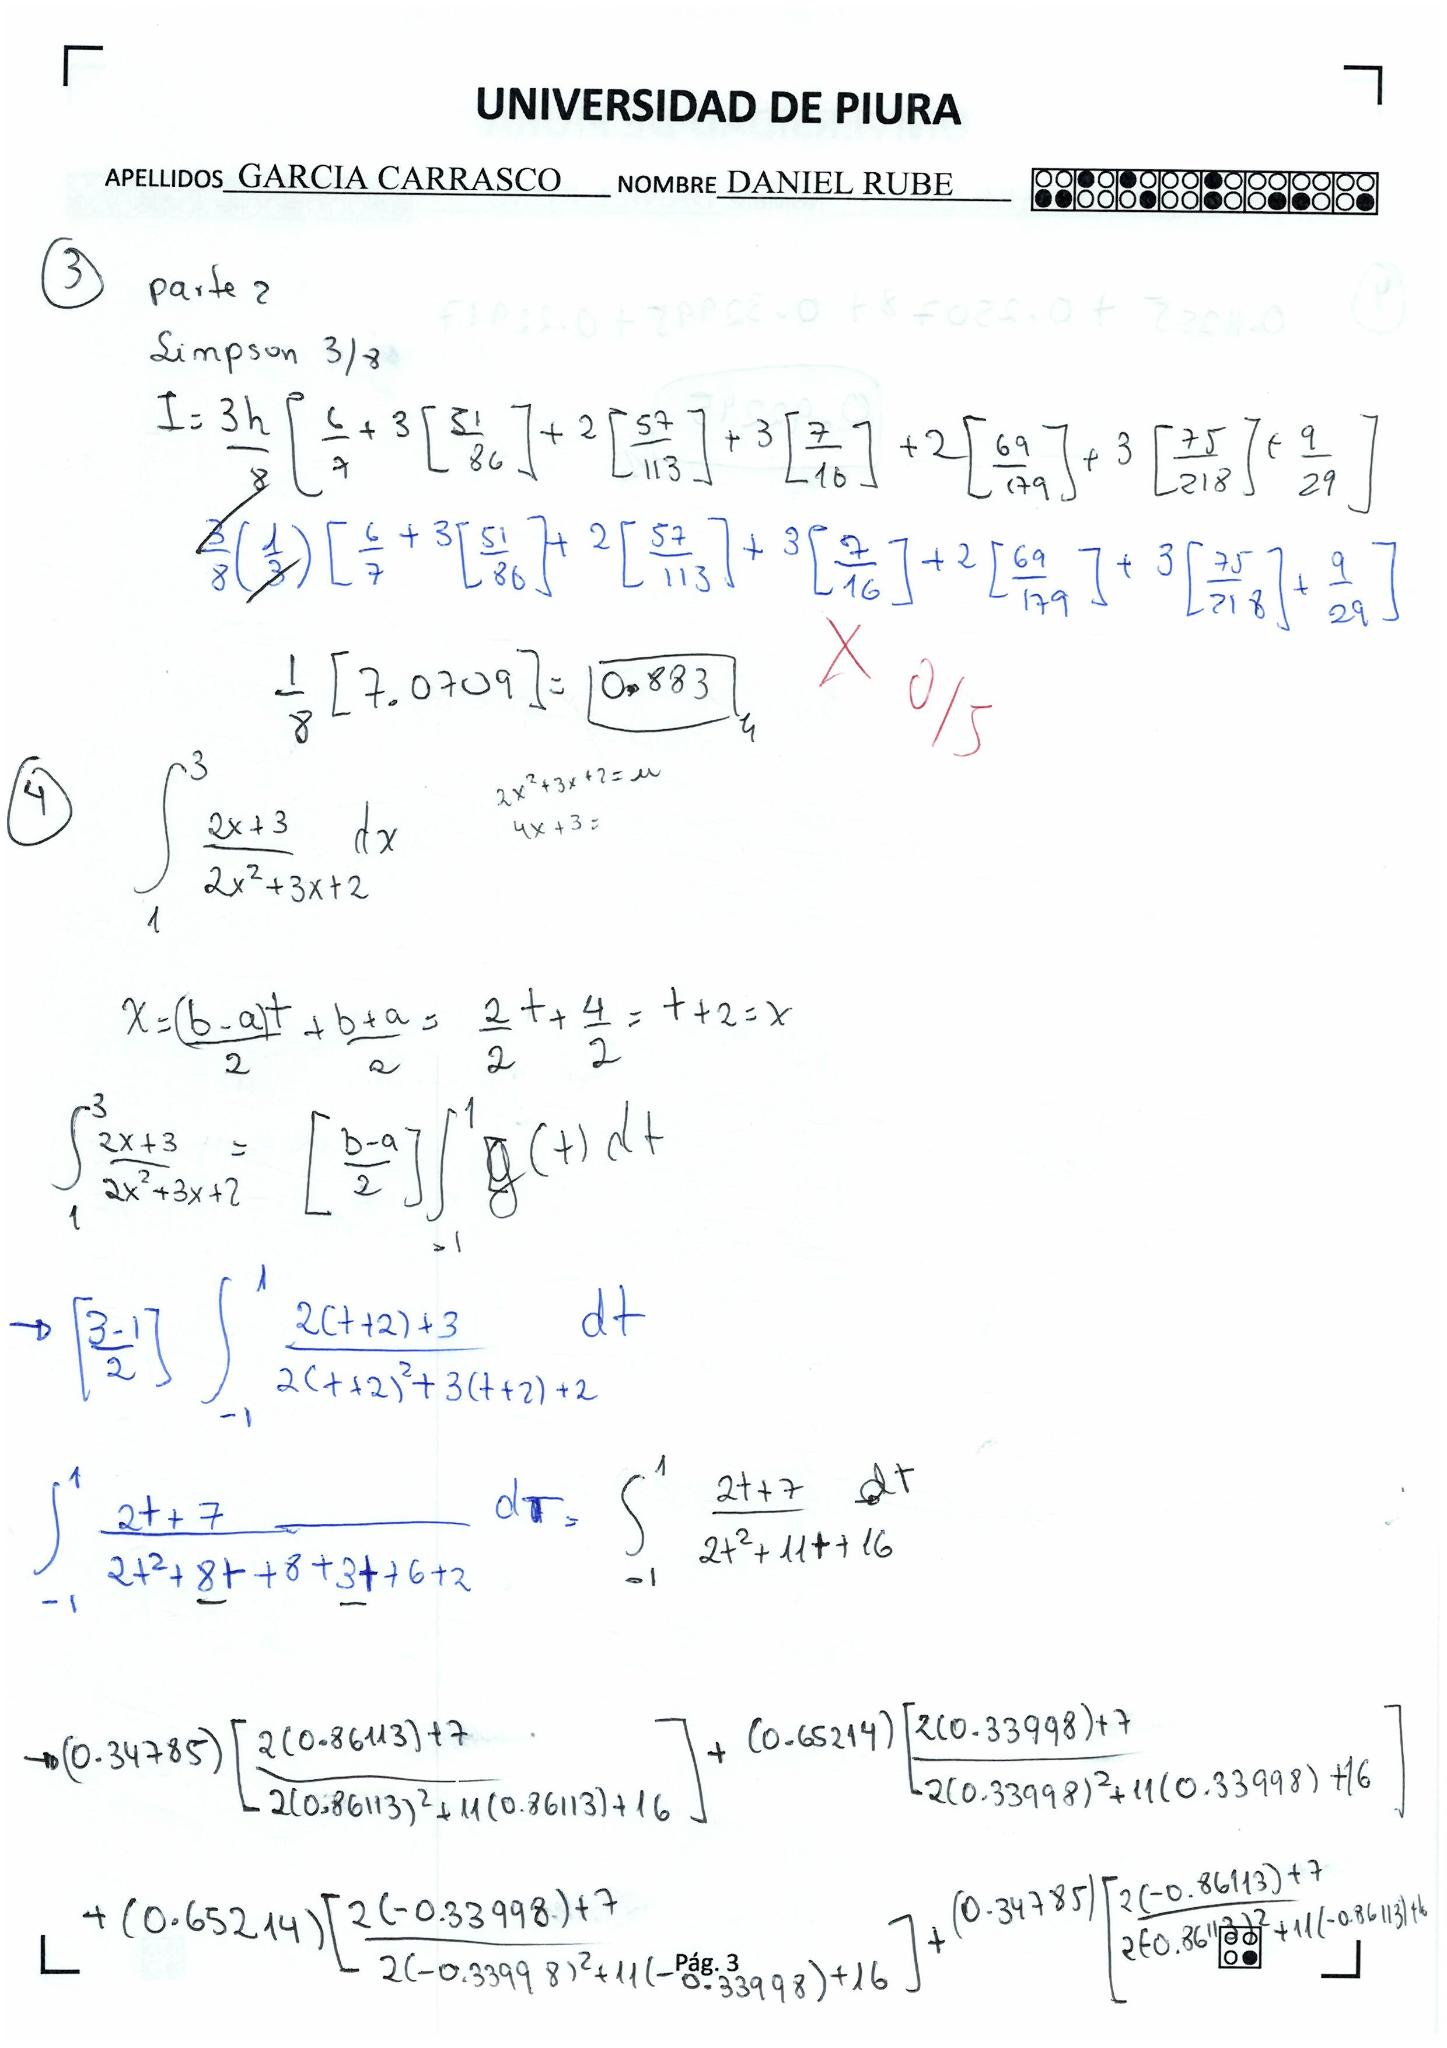 UNIVERSIDAD DE PIURA
APELLIDOS GARCIA CARRASCO NOMBRE DANIEL RUBE
3 parte 2
Simpson 3/8
I = 3h/8 [ 6/7 + 3 [51/86] + 2 [57/113] + 3 [7/16] + 2 [69/179] + 3 [75/218] + 9/29 ]
3/8 (1/3) [ 6/7 + 3 [51/86] + 2 [57/113] + 3 [7/16] + 2 [69/179] + 3 [75/218] + 9/29 ]
1/8 [7.0709] = 0.883
X 0/5
4 ∫₁³ (2x+3)/(2x²+3x+2) dx
2x²+3x+2 = u
4x+3 =
x = (b-a)t/2 + (b+a)/2 = 2/2 t + 4/2 = t+2 = x
∫₁³ (2x+3)/(2x²+3x+2) = [(b-a)/2] ∫₋₁¹ g(t) dt
→ [(3-1)/2] ∫₋₁¹ (2(t+2)+3)/(2(t+2)²+3(t+2)+2) dt
∫₋₁¹ (2t+7)/(2t²+8t+8+3t+6+2) dt = ∫₋₁¹ (2t+7)/(2t²+11t+16) dt
→ (0.34785) [ (2(0.86113)+7)/(2(0.86113)²+11(0.86113)+16) ] + (0.65214) [ (2(0.33998)+7)/(2(0.33998)²+11(0.33998)+16) ]
+ (0.65214) [ (2(-0.33998)+7)/(2(-0.33998)²+11(-0.33998)+16) ] + (0.34785) [ (2(-0.86113)+7)/(2(-0.86113)²+11(-0.86113)+16)
Pág. 3